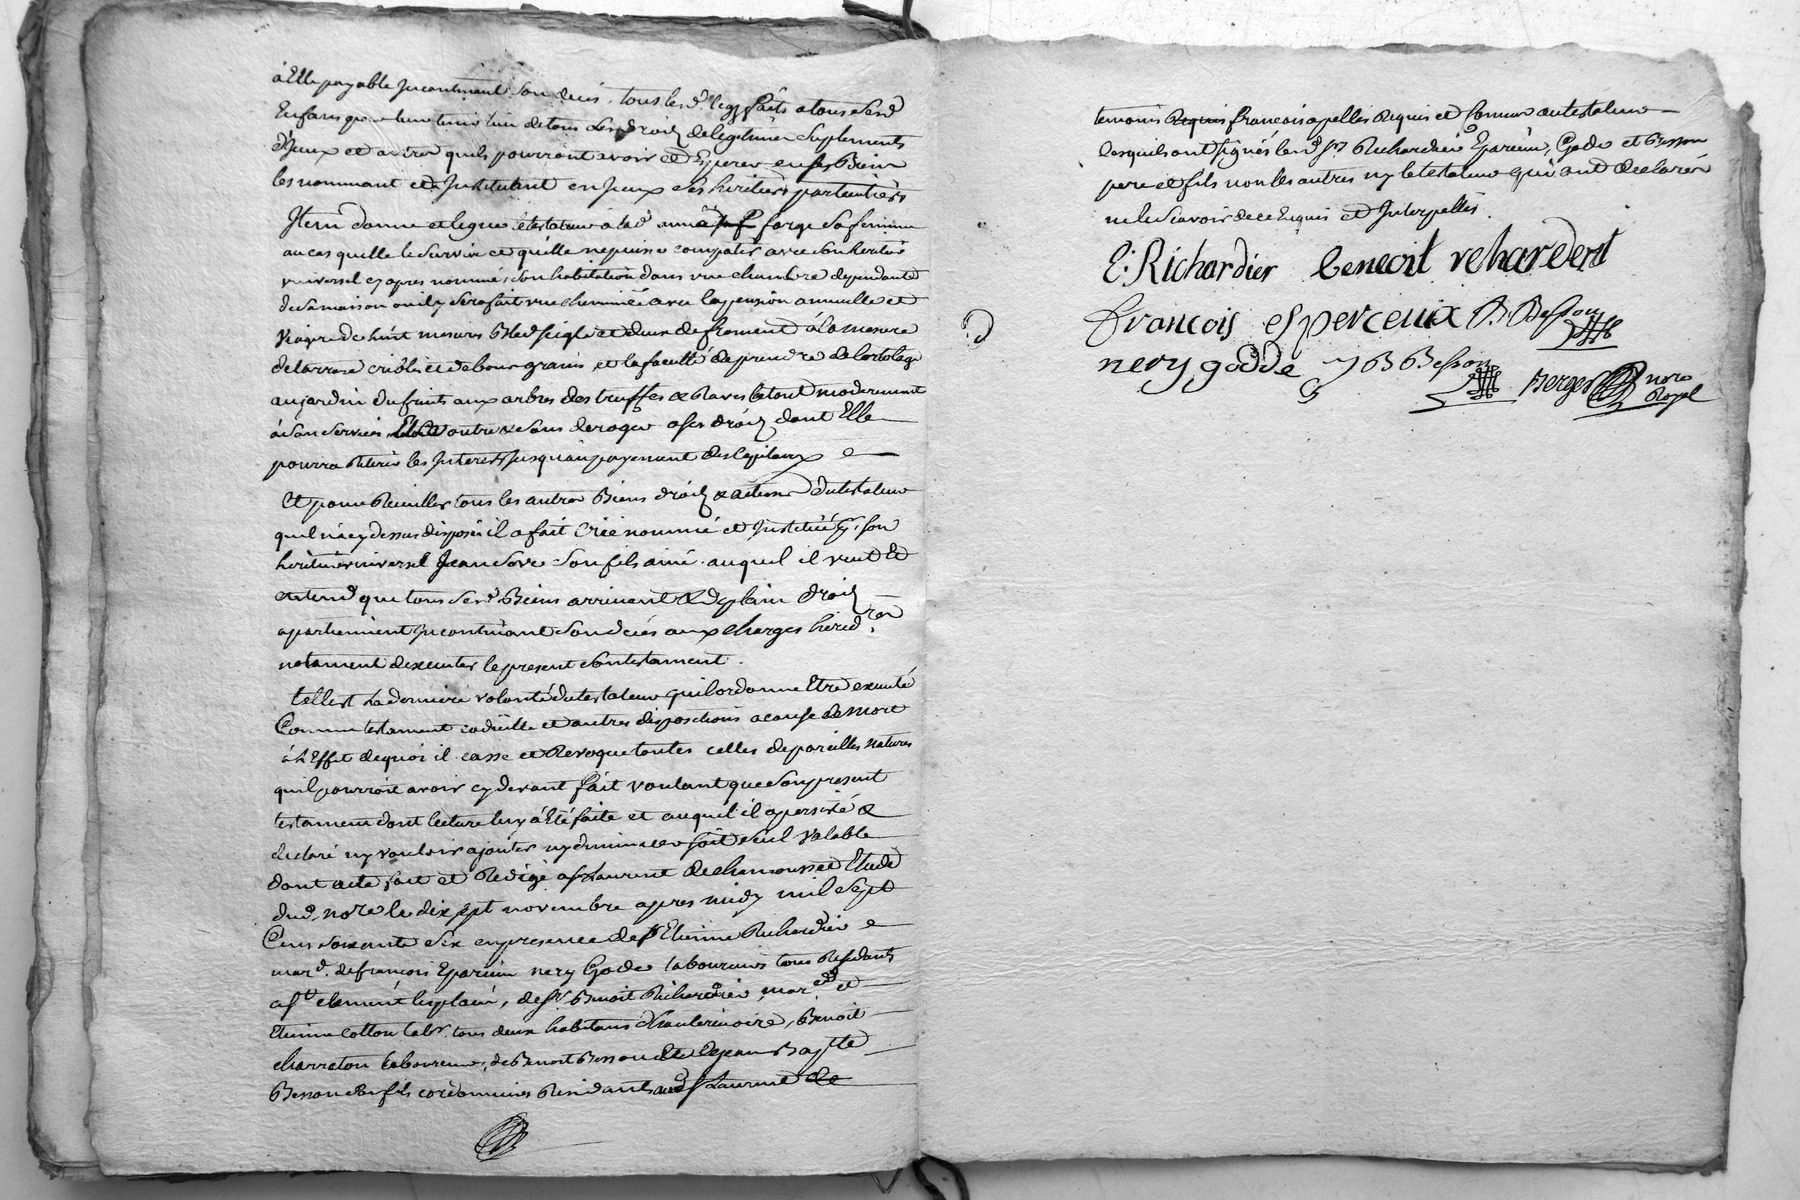 à Elle payable Incontinant son deces, tous lesd. legs faits a tous sesd
Enfans pour leur tenir lieu de tous les droits de legitime suplements
d'Jceux et autres quils pourront avoir et Esperer en ses Biens
les nommant et Instituant en Jceux ses heritiers particuliers
Item donne et legue le testateur à lad. farge sa femme
au cas quelle le survive et quelle ne puisse compatir avec son heritier
universel cy apres nommé, son habitation dans une chambre dependante
de sa maison ou il y sera fait une cheminée avec la pension annuelle et
viagere de huit mesures Bled seigle et deux de froment à la mesure
de larrese criblé et de bons grains et la faculté de prendre de lortolage
au jardin du fruits aux arbres des truffes & Raves le tout moderement
à son service outre & sans deroger a ses droits dont Elle
pourra Retirer les Interets jusquau payement des Capitaux
Et pour Recueillir tous les autres Biens droits & actions du testateur
quil na cy dessus disposé il a fait Créé nommé et Institué pr. son
heritier universel Jean Sove son fils ainé auquel il veut Et
entend que tous sesd. Biens arrivent & de plain droit
apartiennent Incontinant son deces aux charges hered.res
notament dexecuter le present son testament.
telle est sa derniere volonté du testateur quil ordonne Etre executé
Comme testament codicille et autres dispositions a cause de Mort
à L'Effet dequoi il casse et Revoque toutes celles de pareilles natures
quil pourroit avoir cy devant fait voulant que son present
testament dont lecture luy à Eté faite et auquel il a persisté &
declaré ny vouloir ajouter ny diminuer soit seul Valable
dont acte fait et Redigé a St Laurent de chamousset Etude
dud. nore le dix sept novembre apres midy mil sept
Cens soixante six en presence de Sr Etienne Richardier
mard. de françois Eparcieu nery Gode laboureurs tous Residants
a St clement les places, de Sr Benoit Richardier mard et
Etienne cotton labr. tous deux habitans d'hauterivoire, Benoit
charreton laboureur, de Benoit Besson et de Jean Bapte
Besson son fils cordonniers Residants aud St Laurent de
temoins Requis francois apellés Requis et Connus au testateur
lesquels ont signés lesd Srs Richardier Eparcieu, Gode et Besson
pere et fils non les autres ny le testateur qui ont declarés
ne le scavoir de ce Enquis et Interpellés.
E: Richardier Beneoit rehardert
francois esperceuix B. Besson
nery godde J B Besson
Berger nore
Royal